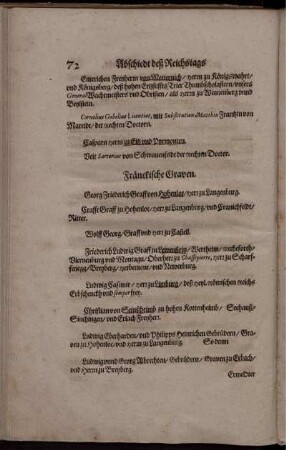 72 Abschiedt deß Reichstags
Emerichen Freyherrn von Metternich / Herrn zu Königswahrt /
und Königsberg / deß hohen Ertzstiffts Trier Thumbscholastern / unsern
General Wachtmeistern und Obristen / als Herrn zu Winenberg und
Beylstein.
Cornelius Gobelius Licentiat, mit Substitution Matthiæ
der Rechten Doctorn.
Caspar Herr zu Eltz und
Veit Sartorius von Schwanenfeldt der Rechten Doctor.
Fränckische Graven.
Georg Friederich Graff von Hohenloe / Herr zu Langenburg.
Crafft Graff zu Hohenloe / Herr zu Langenburg / und Cranichfeldt /
Ritter.
Wolff Georg / Graff und Herr zu Castell.
Friederich Ludwig Graff zu Löwenstein / Wertheim / Rochefort /
Virnenburg und Montagu / Oberherr zu Chassepierre, Herr zu Scharf-
feneck / Breyberg / Herbemont / und Newerburg.
Ludwig Casimir / Herr zu Limburg / deß Heyl. Römischen Reichs
Erbschenck und semper frey.
Christian von Seinßheimb zu hohen Kottenheimb / Seehauß /
und Erlach Freyherr.
Ludwig Eberharden / und Philipps Heinrichen Gebrüdern / Gra-
ven zu Hohenloe / und Herrn zu Langenburg. So denn
Ludwig unnd Georg Albrechten / Gebrüdern / Graven zu Erbach /
und Herrn zu Breyberg.